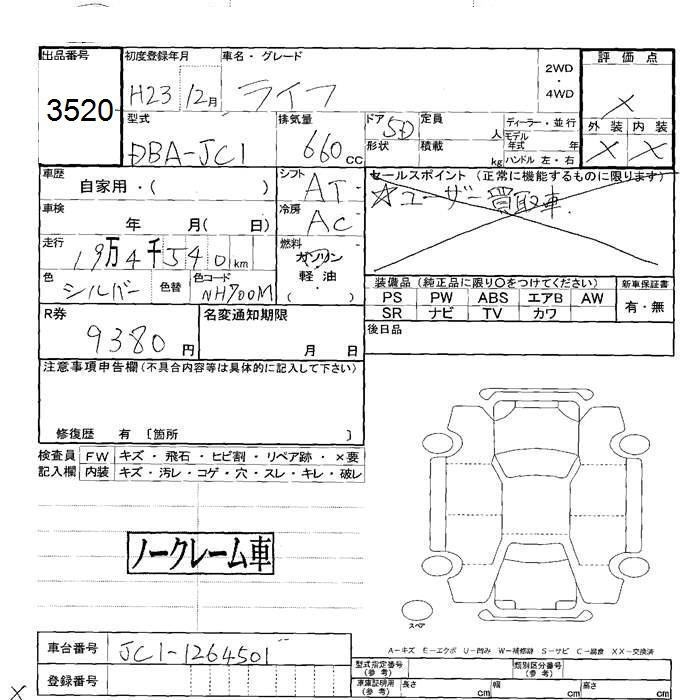 出品番号 初度登録年月 車名・グレード 2WD ・ 4WD 評価点
3520 H23 12月 ライフ ×
型式 排気量 ドア 定員 人 ディーラー・並行 外装 内装
DBA-JC1 660cc 5D 形状 積載 kg モデル年式 年 ハンドル 左・右 × ×
車歴 自家用・( ) シフト AT セールスポイント (正常に機能するものに限ります)
車検 年 月( 日) 冷房 AC ☆ユーザー買取車.
走行 19万4千540km 燃料 ガソリン 軽油 ・ ( )
色 シルバー 色替 色コード NH700M 装備品 (純正品に限り〇をつけてください) 新車保証書
PS PW ABS エアB AW 有・無
SR ナビ TV カワ
R券 9380円 名変通知期限 月 日 後日品
注意事項申告欄(不具合内容等は具体的に記入して下さい)
修復歴 有 〔箇所 〕
検査員 FW キズ・飛石・ヒビ割・リペア跡・×要
記入欄 内装 キズ・汚レ・コゲ・穴・スレ・キレ・破レ
ノークレーム車
スペア
A-キズ E-エクボ U-凹み W-補修跡 S-サビ C-腐食 XX-交換済
車台番号 JC1-1264501
型式指定番号(参考) 類別区分番号(参考)
登録番号 車庫証明用(参考) 長さ cm 幅 cm 高さ cm
×